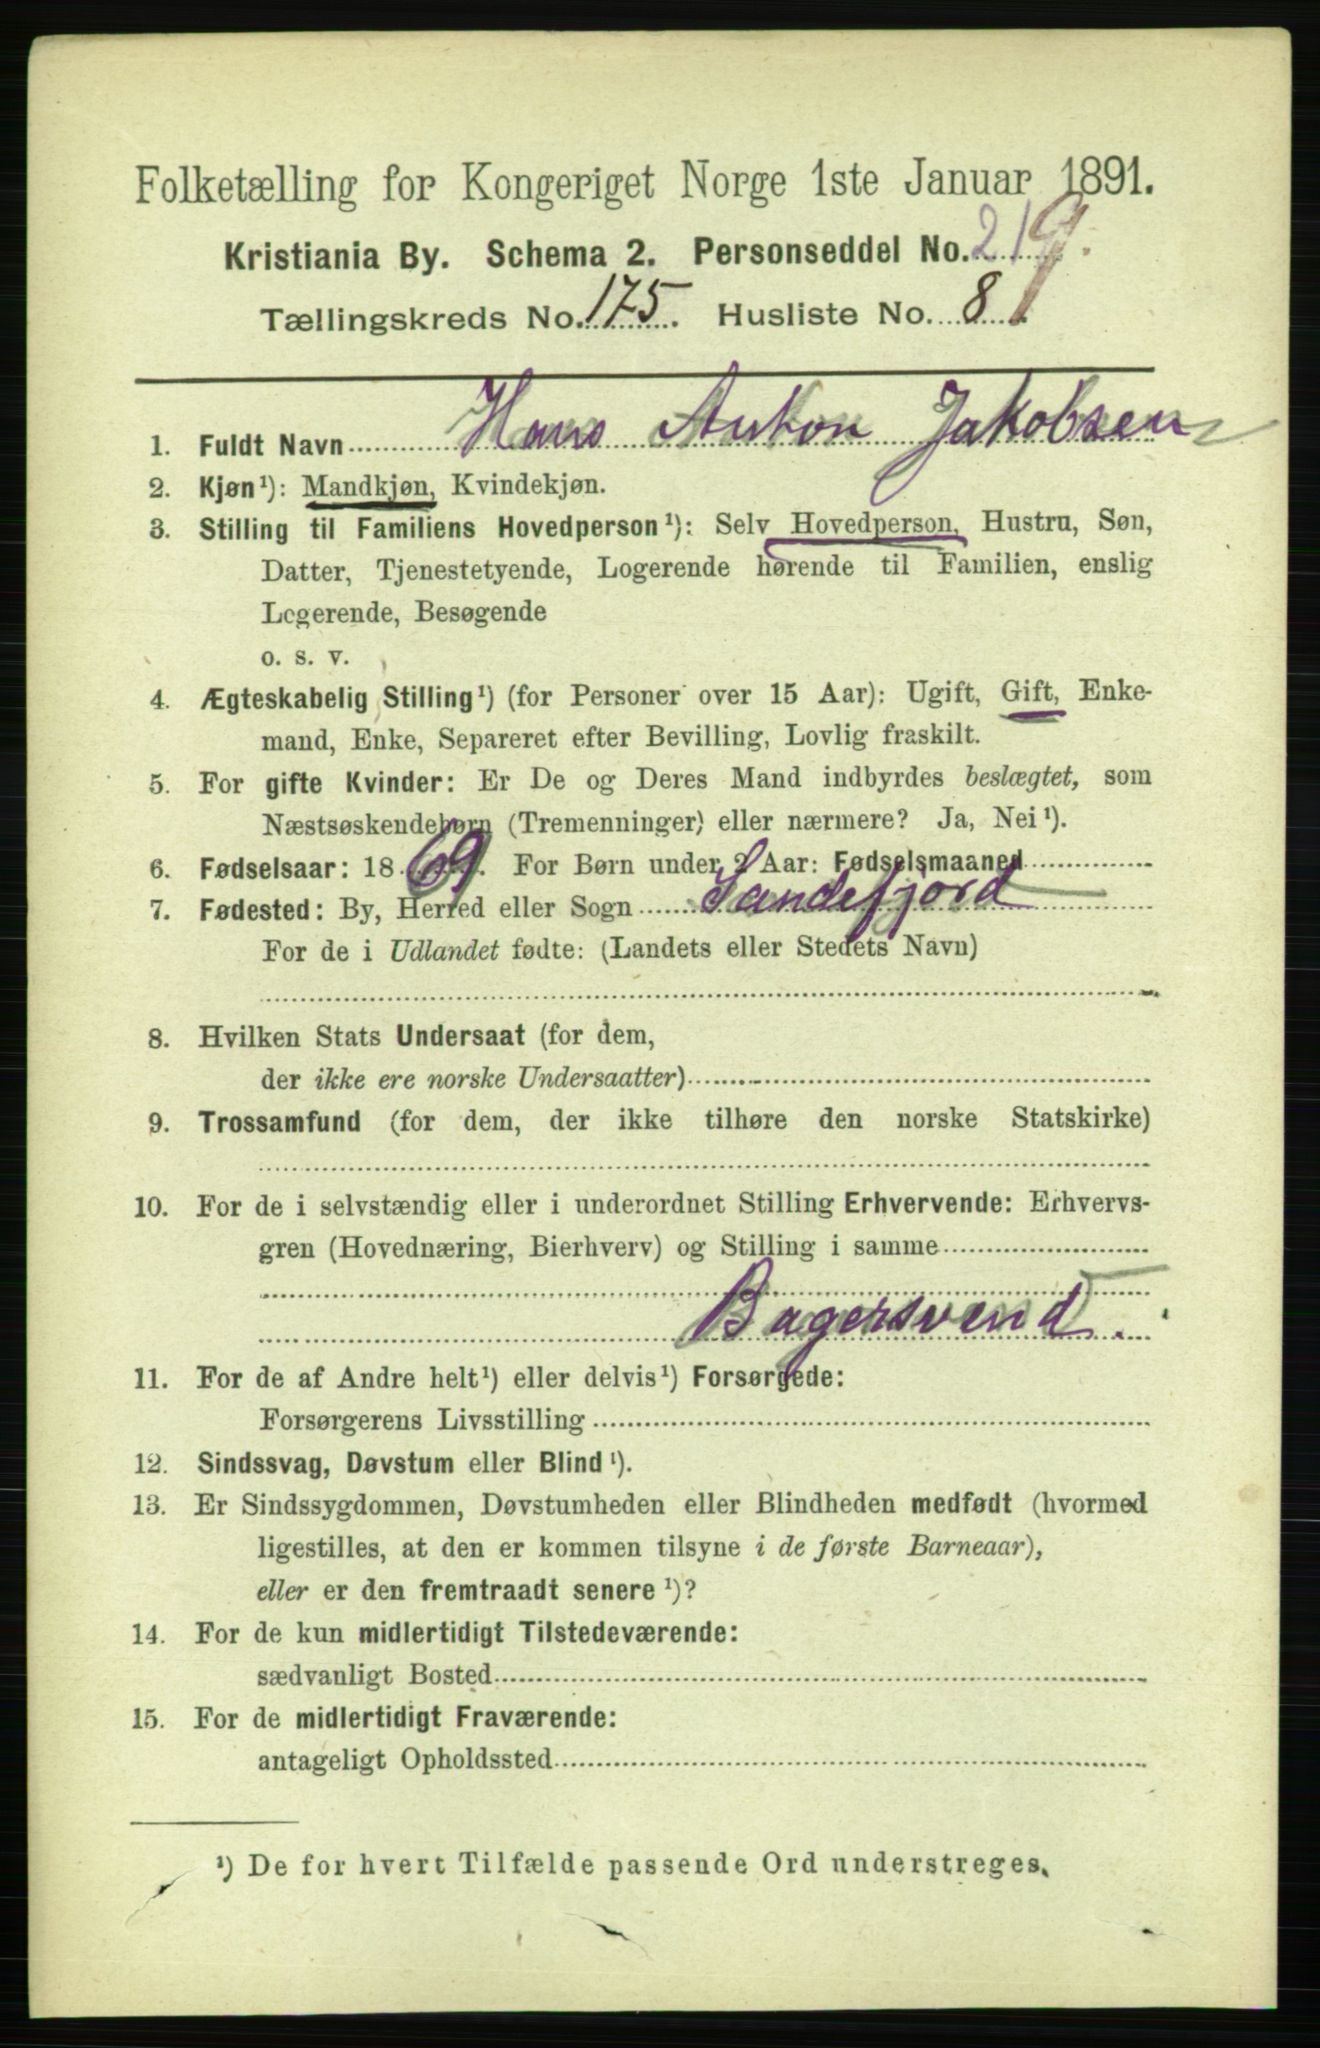 Folketælling for Kongeriget Norge 1ste Januar 1891.
Kristiania By. Schema 2. Personseddel No. 219.
Tællingskreds No. 175. Husliste No. 8.
1. Fuldt Navn Hans Anton Jakobsen
2. Kjøn¹): Mandkjøn, Kvindekjøn.
3. Stilling til Familiens Hovedperson¹): Selv Hovedperson, Hustru, Søn,
Datter, Tjenestetyende, Logerende hørende til Familien, enslig
Logerende, Besøgende
o. s. v.
4. Ægteskabelig Stilling¹) (for Personer over 15 Aar): Ugift, Gift, Enke-
mand, Enke, Separeret efter Bevilling, Lovlig fraskilt.
5. For gifte Kvinder: Er De og Deres Mand indbyrdes beslægtet, som
Næstsøskendebørn (Tremenninger) eller nærmere? Ja, Nei¹).
6. Fødselsaar: 1869. For Børn under 2 Aar: Fødselsmaaned
7. Fødested: By, Herred eller Sogn Sandefjord
For de i Udlandet fødte: (Landets eller Stedets Navn)
8. Hvilken Stats Undersaat (for dem,
der ikke ere norske Undersaatter)
9. Trossamfund (for dem, der ikke tilhøre den norske Statskirke)
10. For de i selvstændig eller i underordnet Stilling Erhvervende: Erhvervs-
gren (Hovednæring, Bierhverv) og Stilling i samme
Bagersvend.
11. For de af Andre helt¹) eller delvis¹) Forsørgede:
Forsørgerens Livsstilling
12. Sindssvag, Døvstum eller Blind¹).
13. Er Sindssygdommen, Døvstumheden eller Blindheden medfødt (hvormed
ligestilles, at den er kommen tilsyne i de første Barneaar),
eller er den fremtraadt senere¹)?
14. For de kun midlertidigt Tilstedeværende:
sædvanligt Bosted
15. For de midlertidigt Fraværende:
antageligt Opholdssted
¹) De for hvert Tilfælde passende Ord understreges.